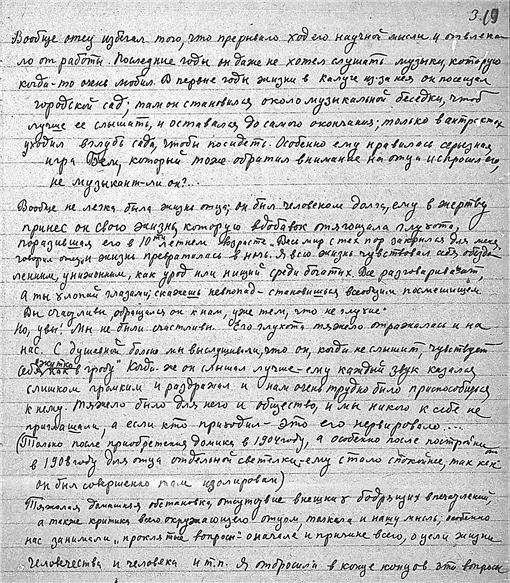 3. 19
Вообще отец избегал того, что прерывало ход его научной мысли и отвлека-
ло от работы. Последние годы он даже не хотел слушать музыки, которую
когда-то очень любил. В первые годы жизни в Калуге из-за нея он посещал
городской сад; там он становился около музыкальной беседки, чтоб
лучше ее слышать, и оставался до самого окончания; только в антрактах
уходил вглубь сада, чтобы посидеть. Особенно ему нравилась серьезная
игра который тоже обратил внимание на отца и спросил его,
не музыкант-ли он?...
Вообще не легка была жизнь отца; он был человеком долга, ему в жертву
принес он свою жизнь, которую вдобавок отягощала глухота,
поразившая его в 10ти летнем возрасте. Весь мир с тех пор закрылся для меня,
говорил отец, и жизнь превратилась в ночь. Я всю жизнь чувствовал себя обездо-
ленным, униженным, как урод или нищий среди богатых. Все разговаривают,
а ты хлопай глазами; скажешь невпопад - становишься всеобщим посмешищем.
Вы счастливы, обращался он к нам, уже тем, что не глухие.
Но, увы! Мы не были счастливы. Его глухота тяжело отражалась и на
нас. С душевной болью мы выслушивали, что он, когда не слышит, чувствует
себя, как в гробу. Когда же он слышал лучше - ему каждый звук казался
слишком громким и раздражал и нам очень трудно было приспособиться
к нему. Тяжело было для него и общество, и мы никого к себе не
приглашали, а если кто приходил - это его нервировало....
(Только после приобретения домика в 1904 году, а особенно после постройки
в 1908 году для отца отдельной светелки - ему стало спокойнее, так как
он был совершенно там изолирован)
Тяжелая домашняя обстановка, отсутствие внешних бодрящих впечатлений
а также критика всего окружающего отцом, толкала и нашу мысль, особенно
нас занимали „проклятые вопросы": о начале и причине всего, о цели жизни
человечества и человека и т.п. Я отбросила в конце концов эти вопросы